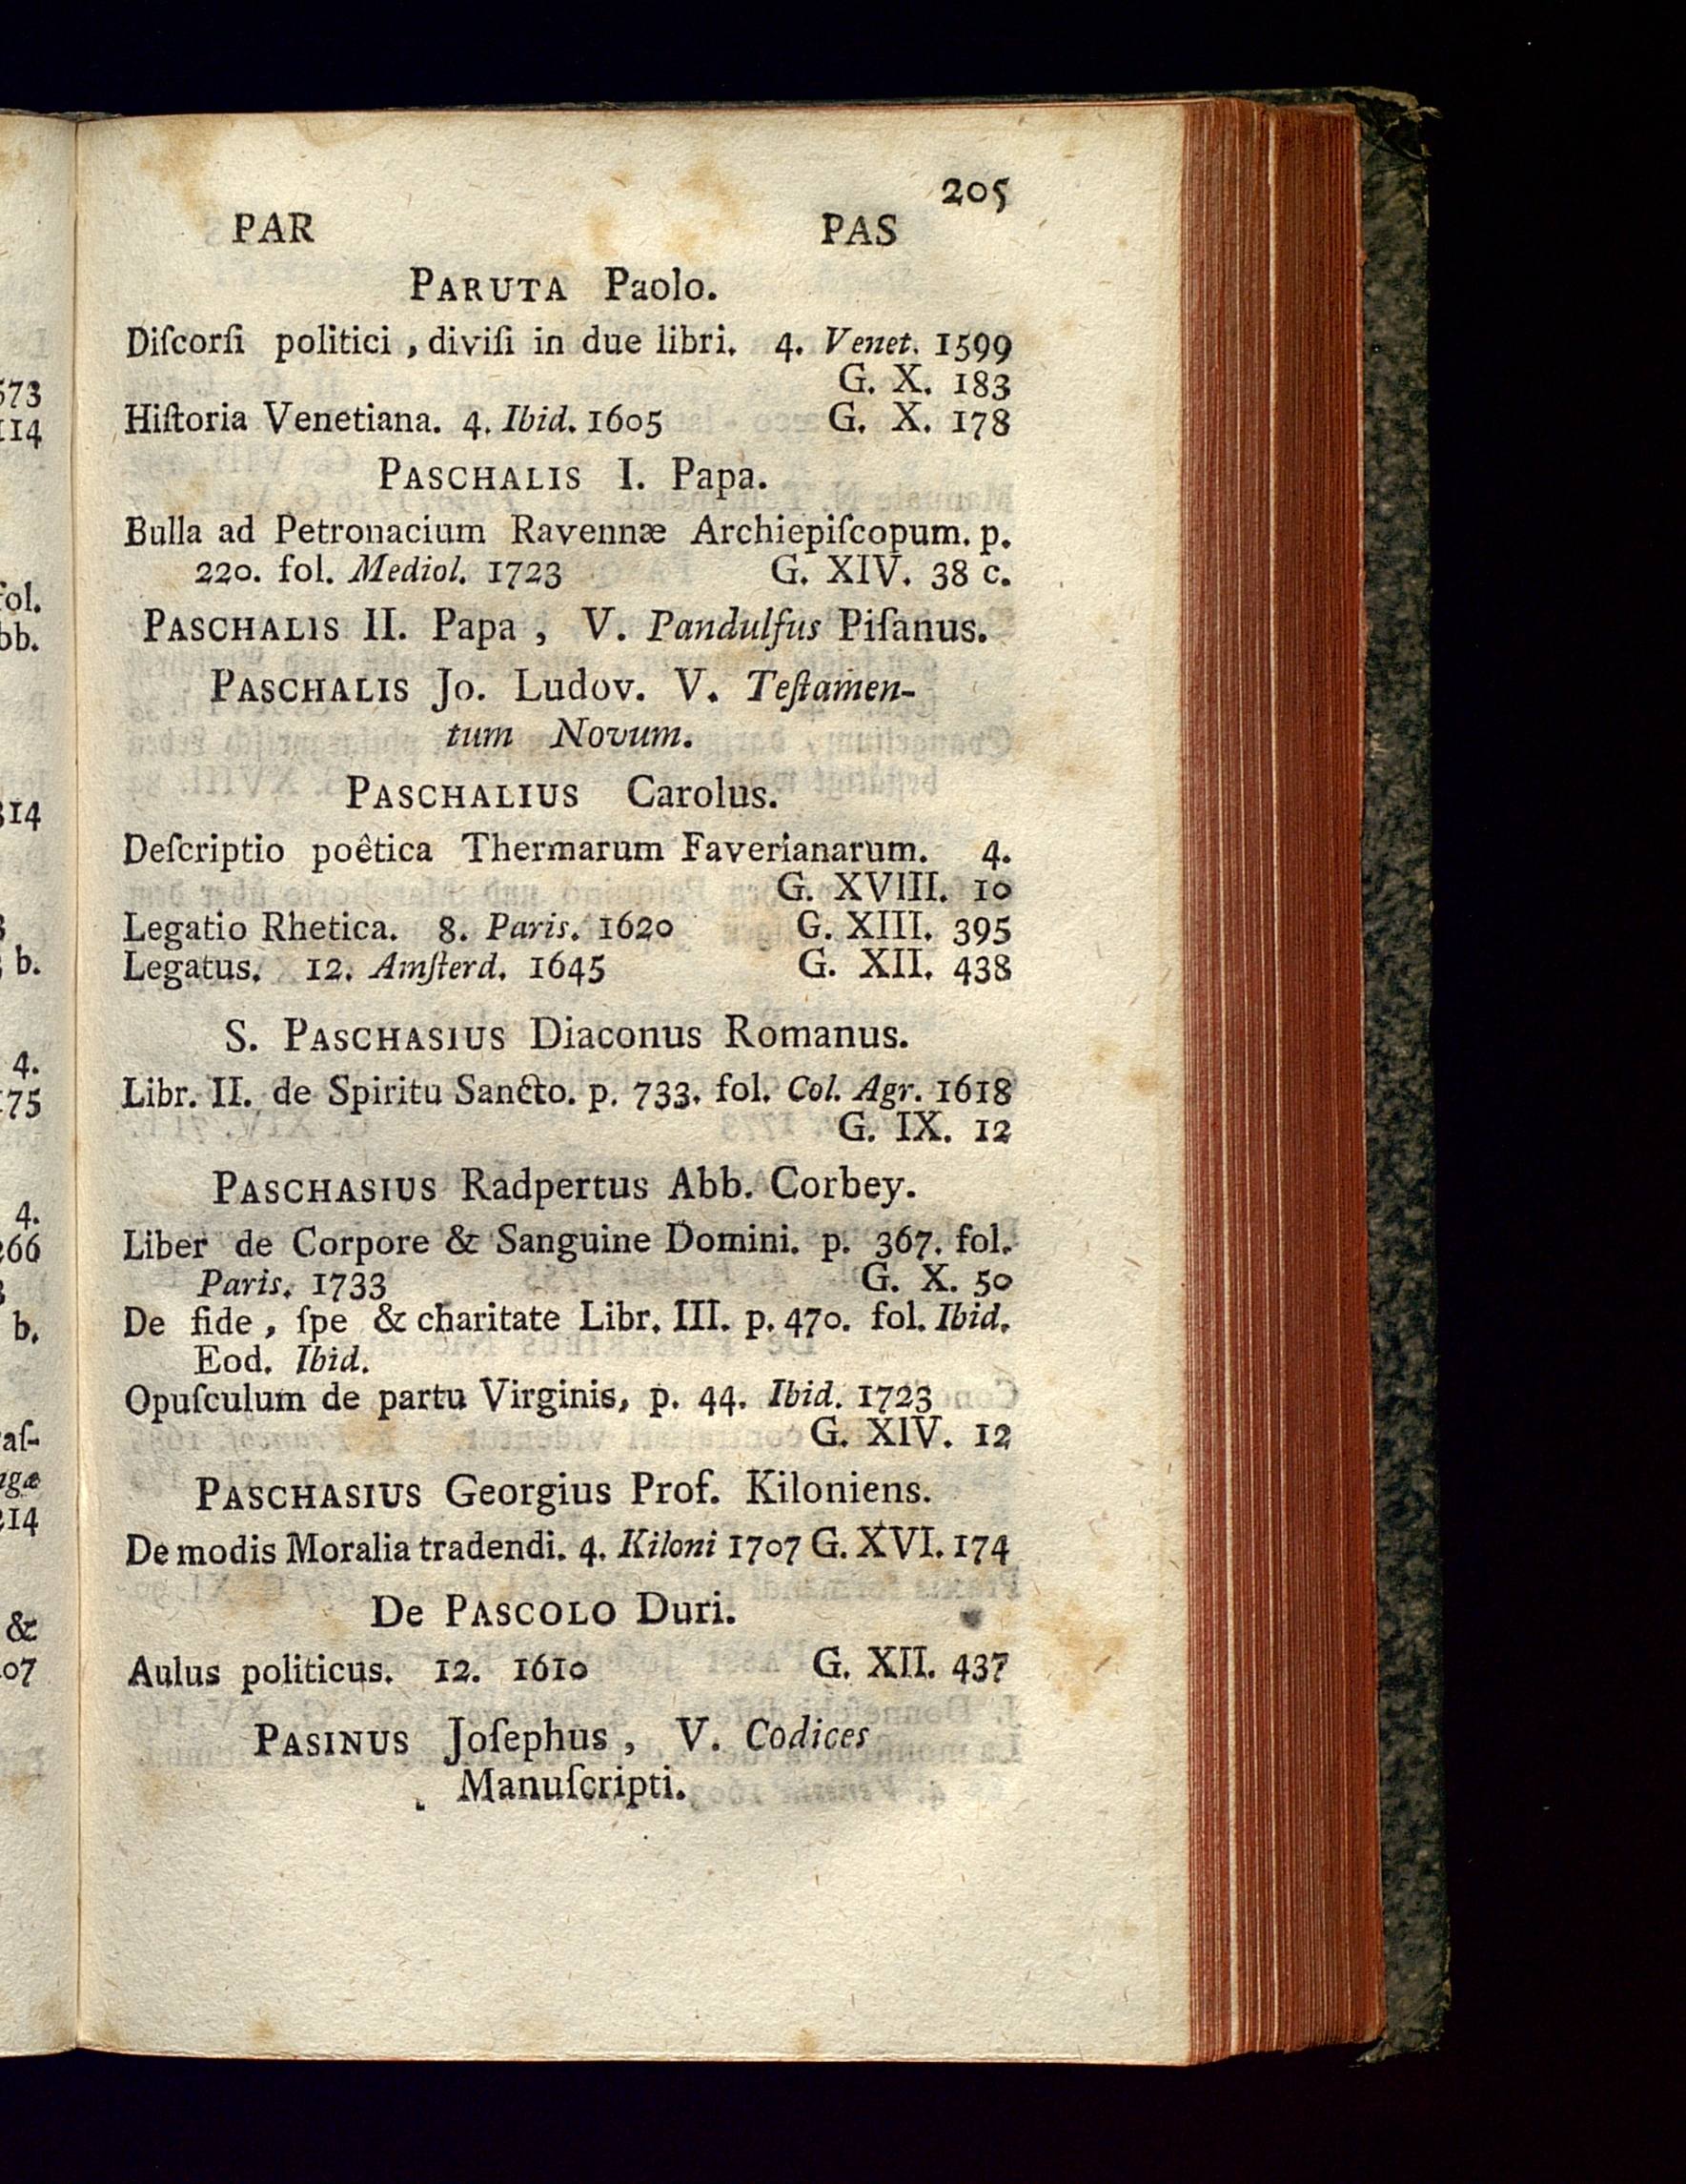 205
PAR PAS
PARUTA Paolo.
Diſcorſi politici, diviſi in due libri. 4. Venet. 1599
G. X. 183
Hiſtoria Venetiana. 4. Ibid. 1605 G. X. 178
PASCHALIS I. Papa.
Bulla ad Petronacium Ravennæ Archiepiſcopum. p.
220. fol. Mediol. 1723 G. XIV. 38 c.
PASCHALIS II. Papa, V. Pandulfus Piſanus.
PASCHALIS Jo. Ludov. V. Teſtamen-
tum Novum.
PASCHALIUS Carolus.
Deſcriptio poêtica Thermarum Faverianarum. 4.
G. XVIII. 10
Legatio Rhetica. 8. Paris. 1620 G. XIII. 395
Legatus. 12. Amſterd. 1645 G. XII. 438
S. PASCHASIUS Diaconus Romanus.
Libr. II. de Spiritu Sancto. p. 733. fol. Col. Agr. 1618
G. IX. 12
PASCHASIUS Radpertus Abb. Corbey.
Liber de Corpore & Sanguine Domini. p. 367. fol.
Paris. 1733 G. X. 50
De fide, ſpe & charitate Libr. III. p. 470. fol. Ibid.
Eod. Ibid.
Opuſculum de partu Virginis, p. 44. Ibid. 1723
G. XIV. 12
PASCHASIUS Georgius Prof. Kiloniens.
De modis Moralia tradendi. 4. Kiloni 1707 G. XVI. 174
De PASCOLO Duri.
Aulus politicus. 12. 1610 G. XII. 437
PASINUS Joſephus, V. Codices
Manuſcripti.